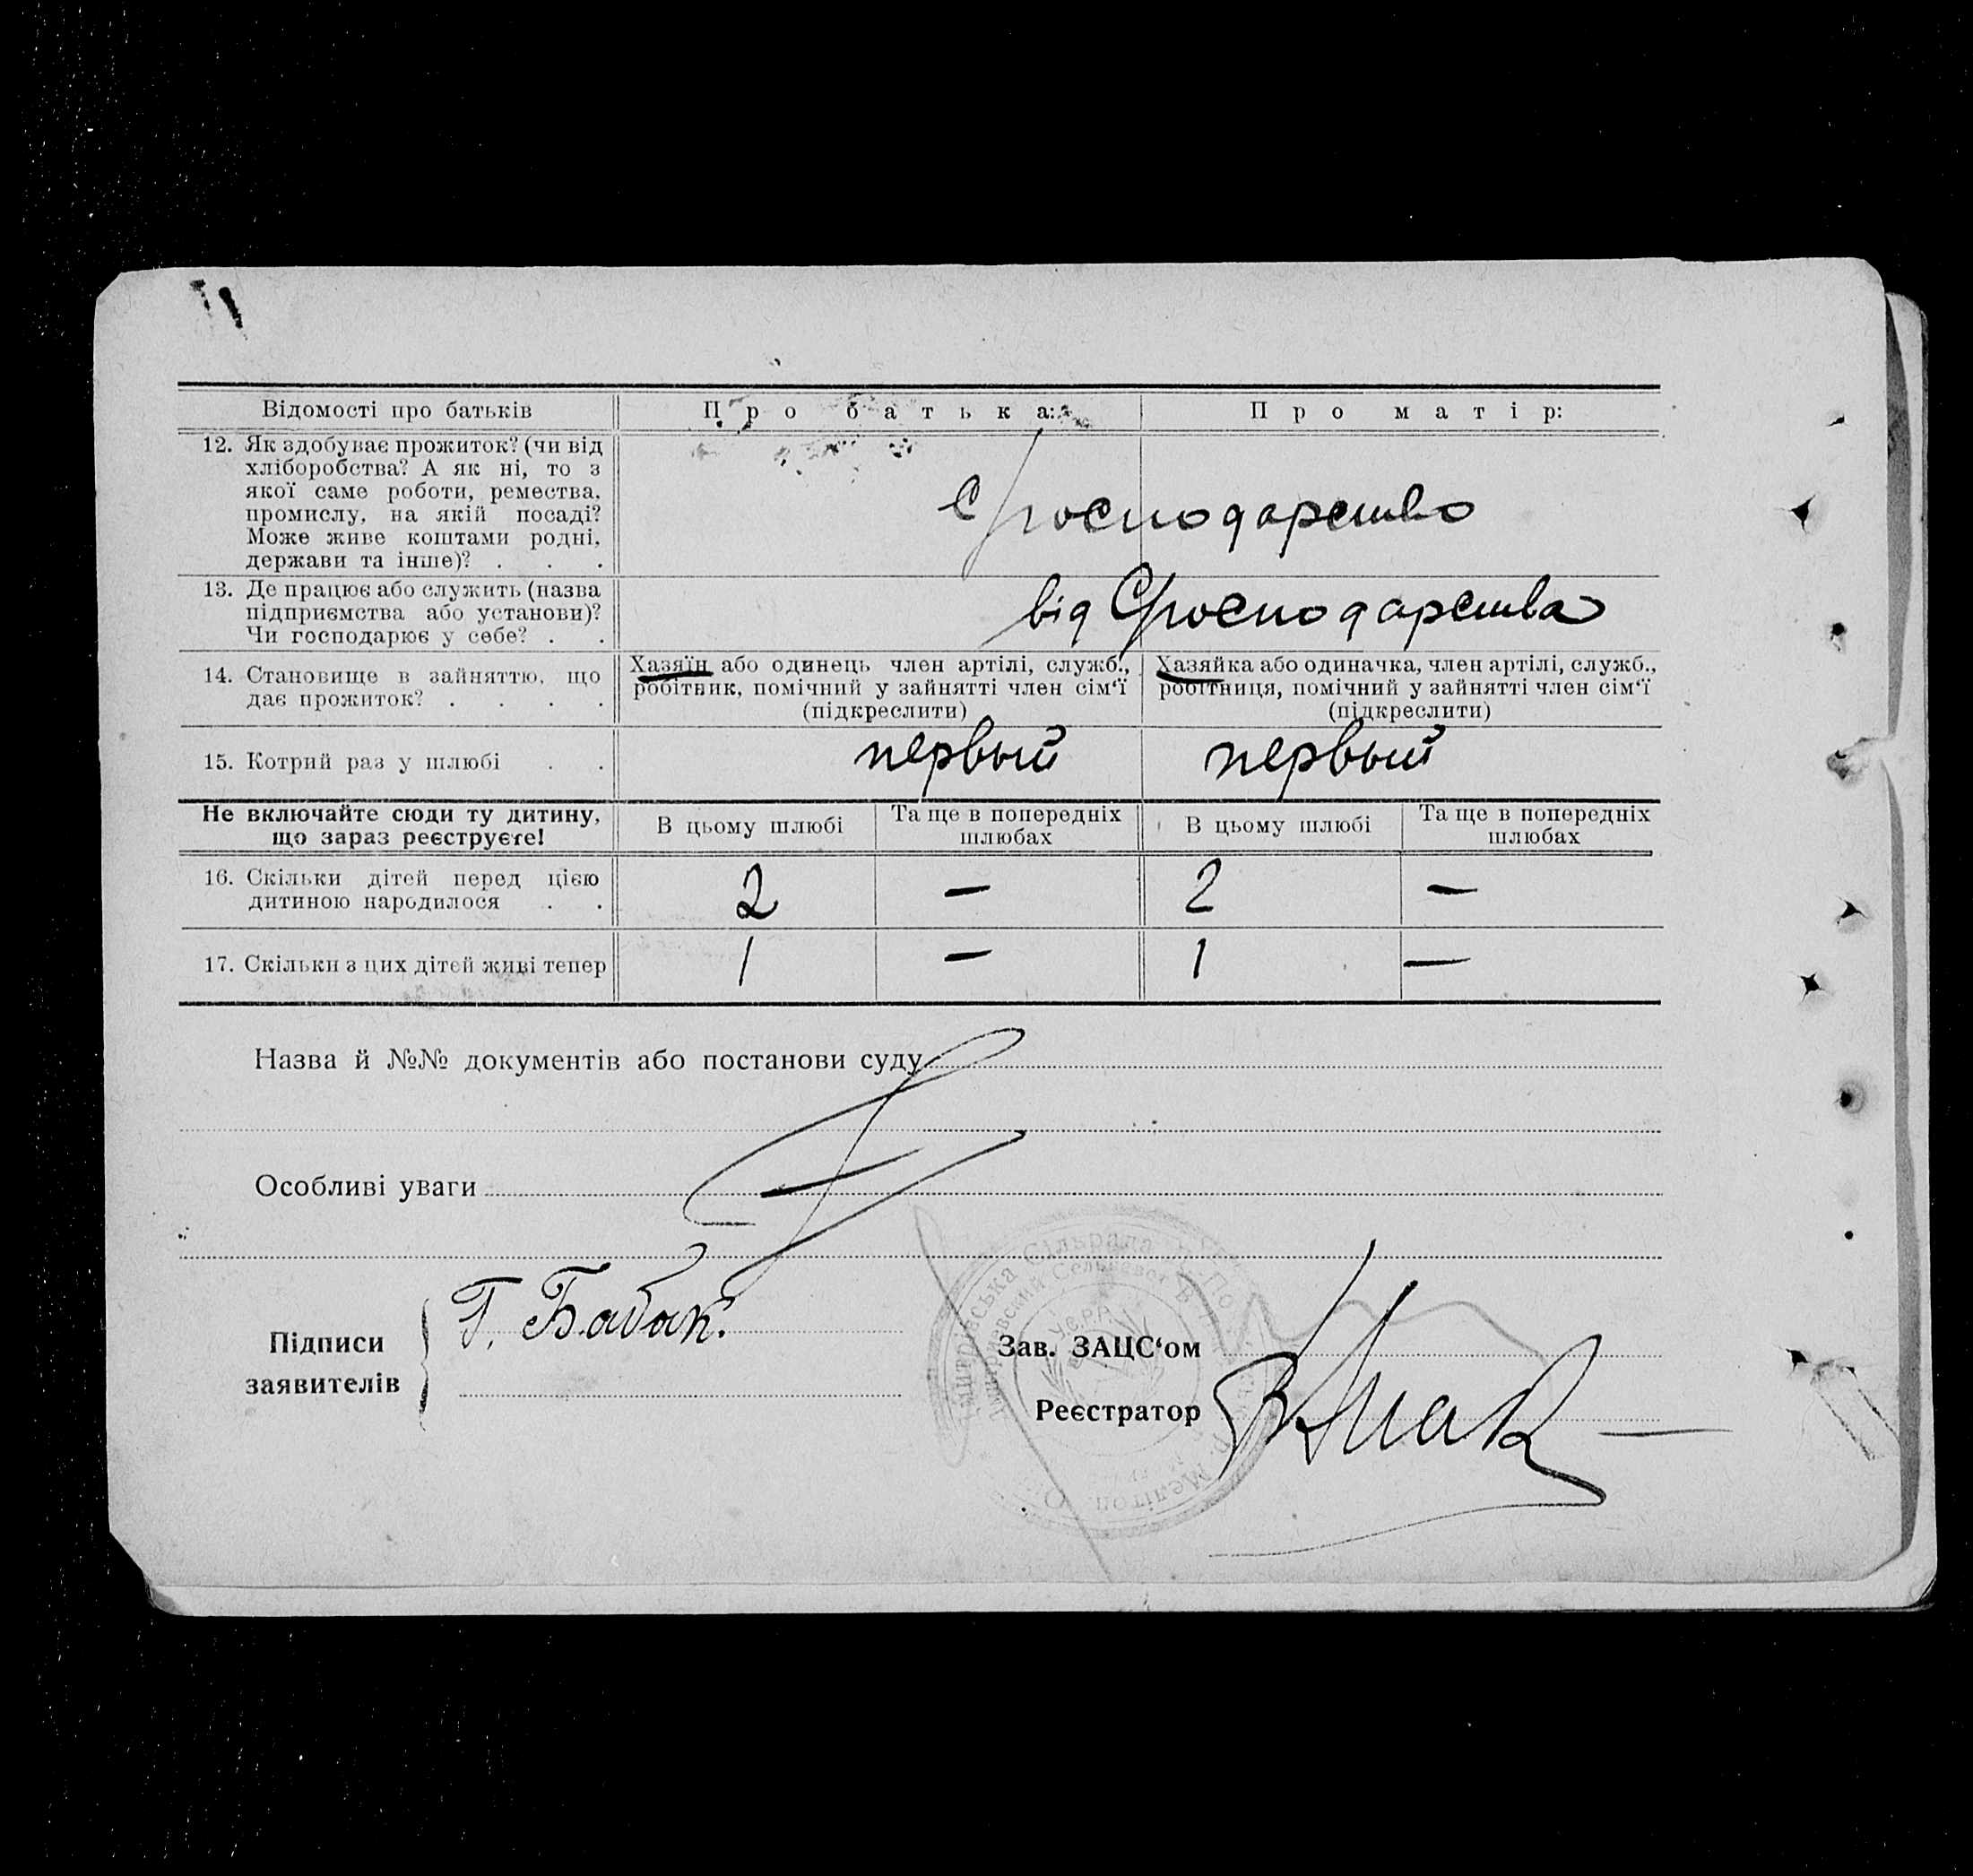 Відомості про батьків
Про батька:
Про матір:
12. Як здобуває прожиток? (чи від
хліборобства? А як ні, то з
якої саме роботи, ремества,
промислу, на якій посаді?
Може живе коштами родні,
держави та інше)? . . .
Господарство
13. Де працює або служить (назва
підприємства або установи)?
Чи господарює у себе? . .
від Господарства
14. Становище в зайняттю, що
дає прожиток? . . . .
Хазяїн або одинець член артілі, служб.,
робітник, помічний у зайнятті член сім‘ї
(підкреслити)
Хазяйка або одиначка, член артілі, служб.,
робітниця, помічний у зайнятті член сім‘ї
(підкреслити)
15. Котрий раз у шлюбі . .
первый
первый
Не включайте сюди ту дитину,
що зараз реєструєте!
В цьому шлюбі
Та ще в попередніх
шлюбах
В цьому шлюбі
Та ще в попередніх
шлюбах
16. Скільки дітей перед цією
дитиною народилося . .
2 — 2 —
17. Скільки з цих дітей живі тепер
1 — 1 —
Назва й №№ документів або постанови суду
Особливі уваги —
Підписи
заявителів
Г. Бабак.
Зав. ЗАЦС‘ом
Реєстратор
Сільрада
У.С.Р.Р.
Мелітоп.